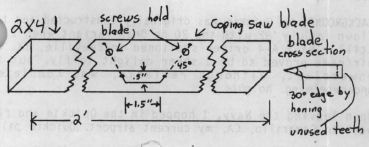 2X4
screws hold
blade
Coping saw blade
blade
cross section
45°
.5"
1.5"
30° edge by
honing
unused teeth
2'